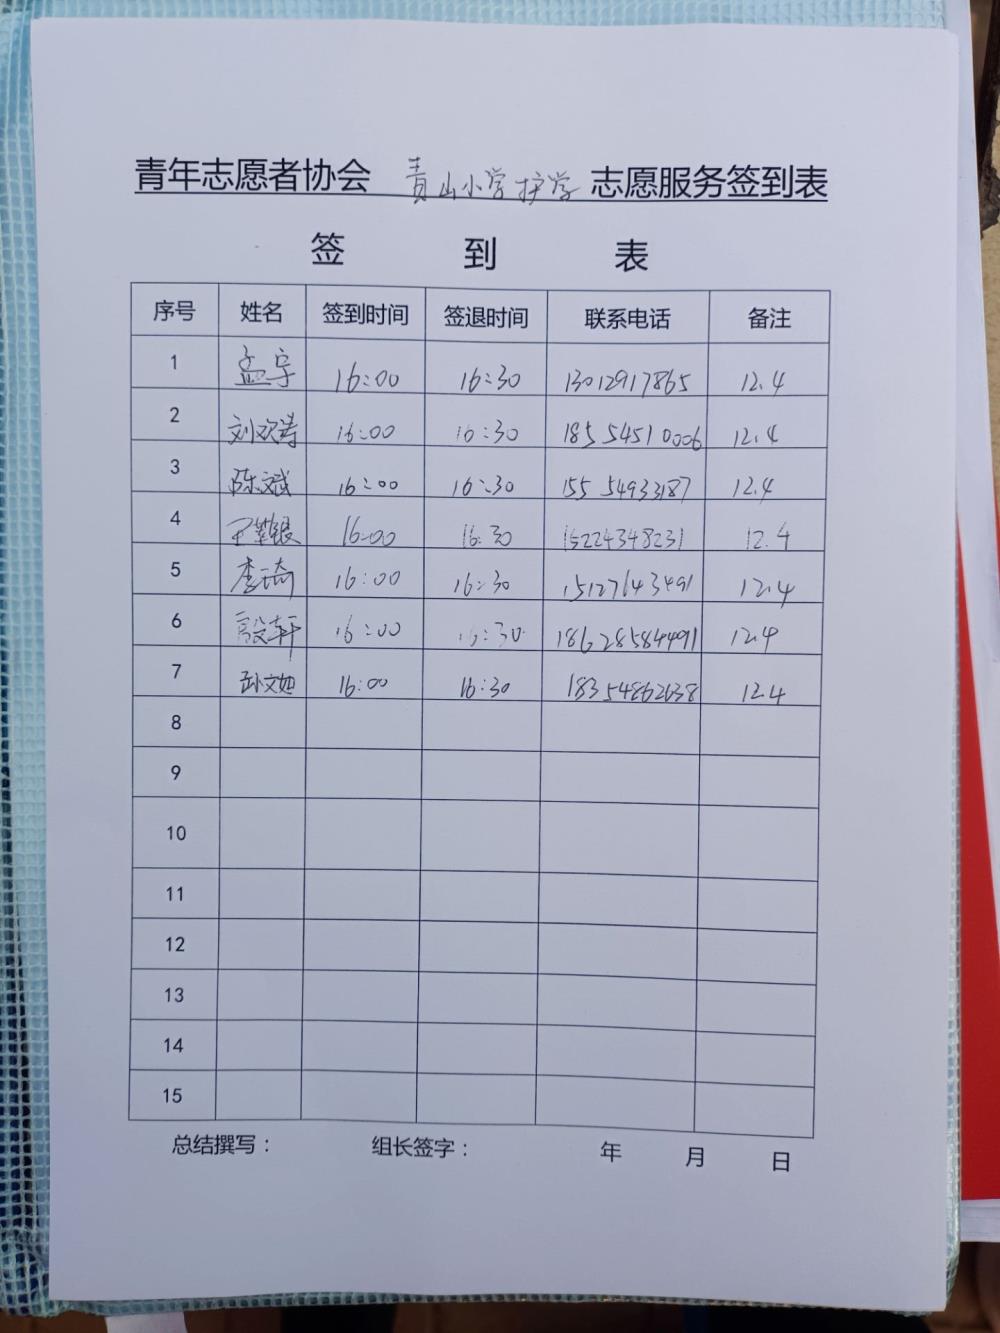 青年志愿者协会 青山小学护学 志愿服务签到表
签 到 表
序号 姓名 签到时间 签退时间 联系电话 备注
1 孟宇 16:00 16:30 13012917865 12.4
2 刘欢涛 16:00 16:30 18554510006 12.4
3 陈文斌 16:00 16:30 15554933187 12.4
4 16:00 16:30 15224348231 12.4
5 李琦 16:00 16:30 15127643491 12.4
6 殷轩 16:00 16:30 18628584491 12.4
7 孙文妲 16:00 16:30 18354862638 12.4
8
9
10
11
12
13
14
15
总结撰写： 组长签字： 年 月 日